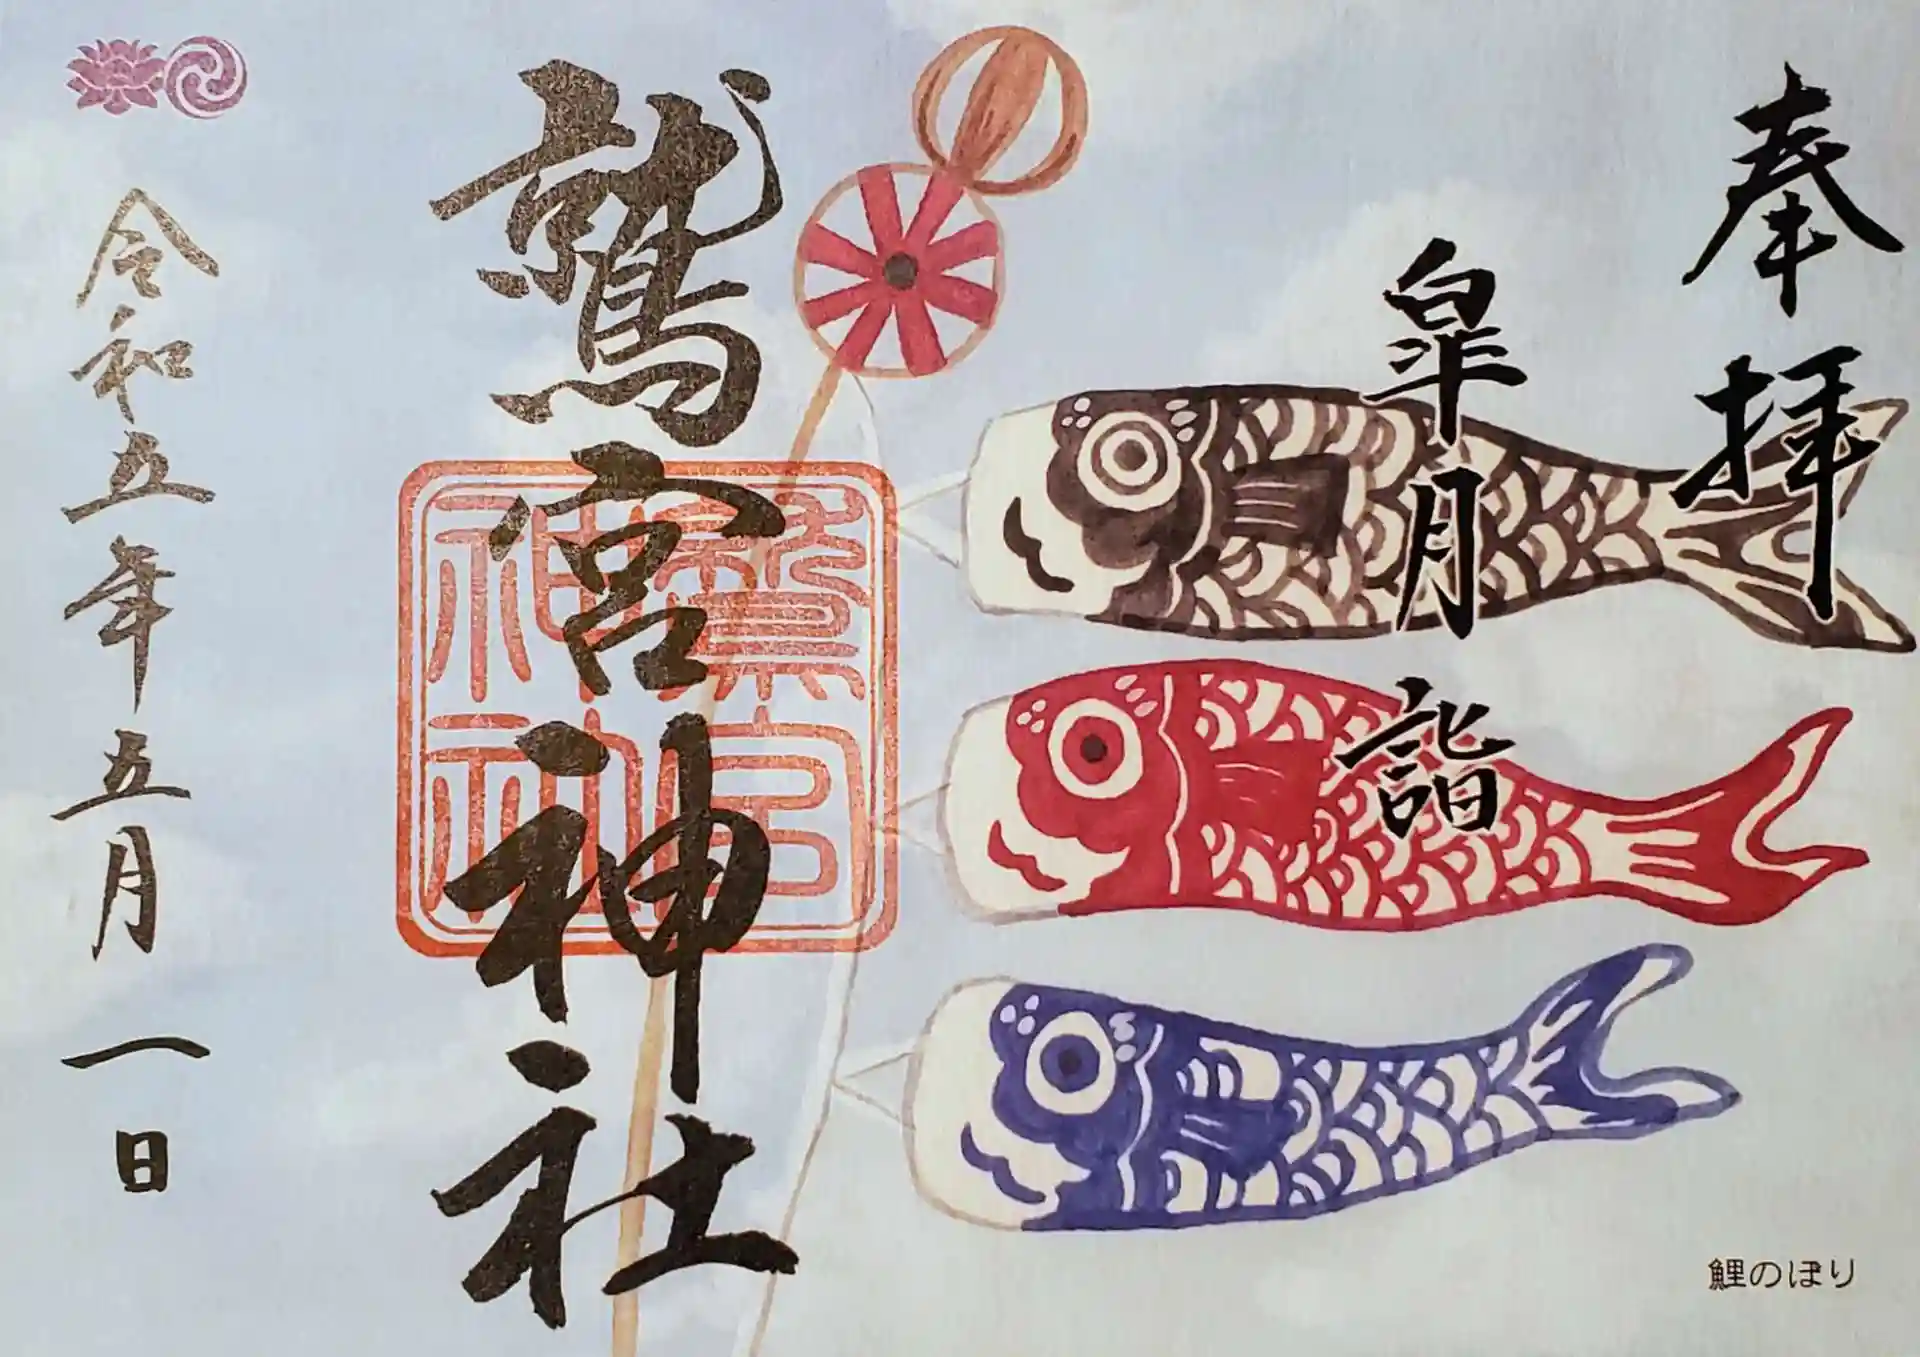 奉拝
皐月詣
鷲宮神社
鷲宮
神社
令和五年五月一日
鯉のぼり